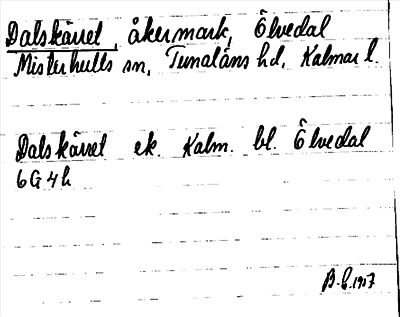 Dalskärret, åkermark, Ölvedal
Misterhults sn, Tunaläns hd, Kalmar l.
Dalskärret ek. Kalm. bl. Ölvedal
6G4h
B.L. 1917